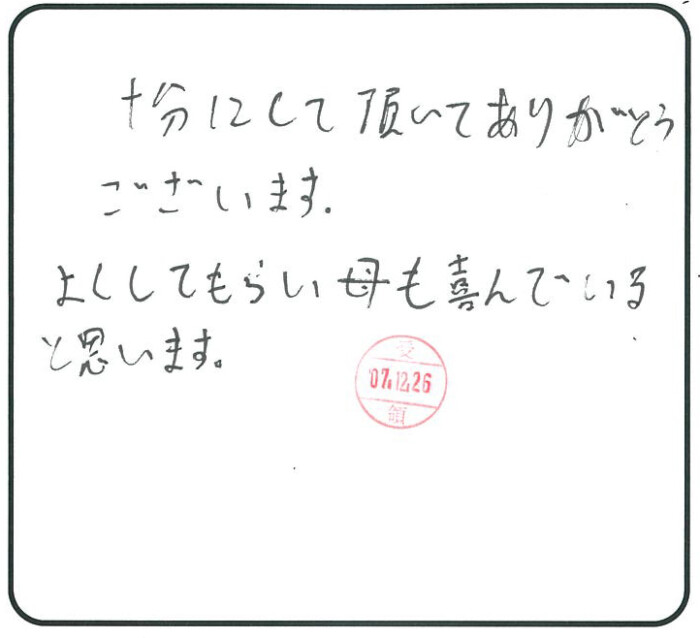 十分にして頂いてありがとう
ございます.
よくしてもらい母も喜んでいる
と思います。
受
'07.12.26
領